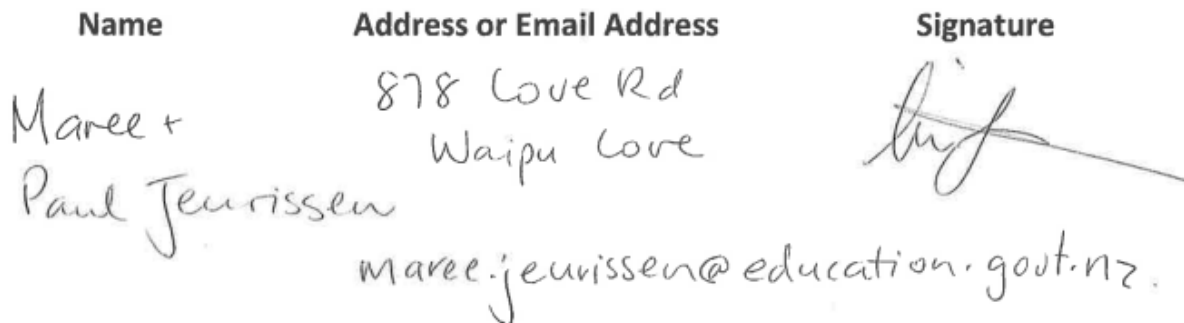 Name Address or Email Address Signature
Maree + 878 Cove Rd
Paul Jeurissen Waipu Cove
maree.jeurissen@education.govt.nz.